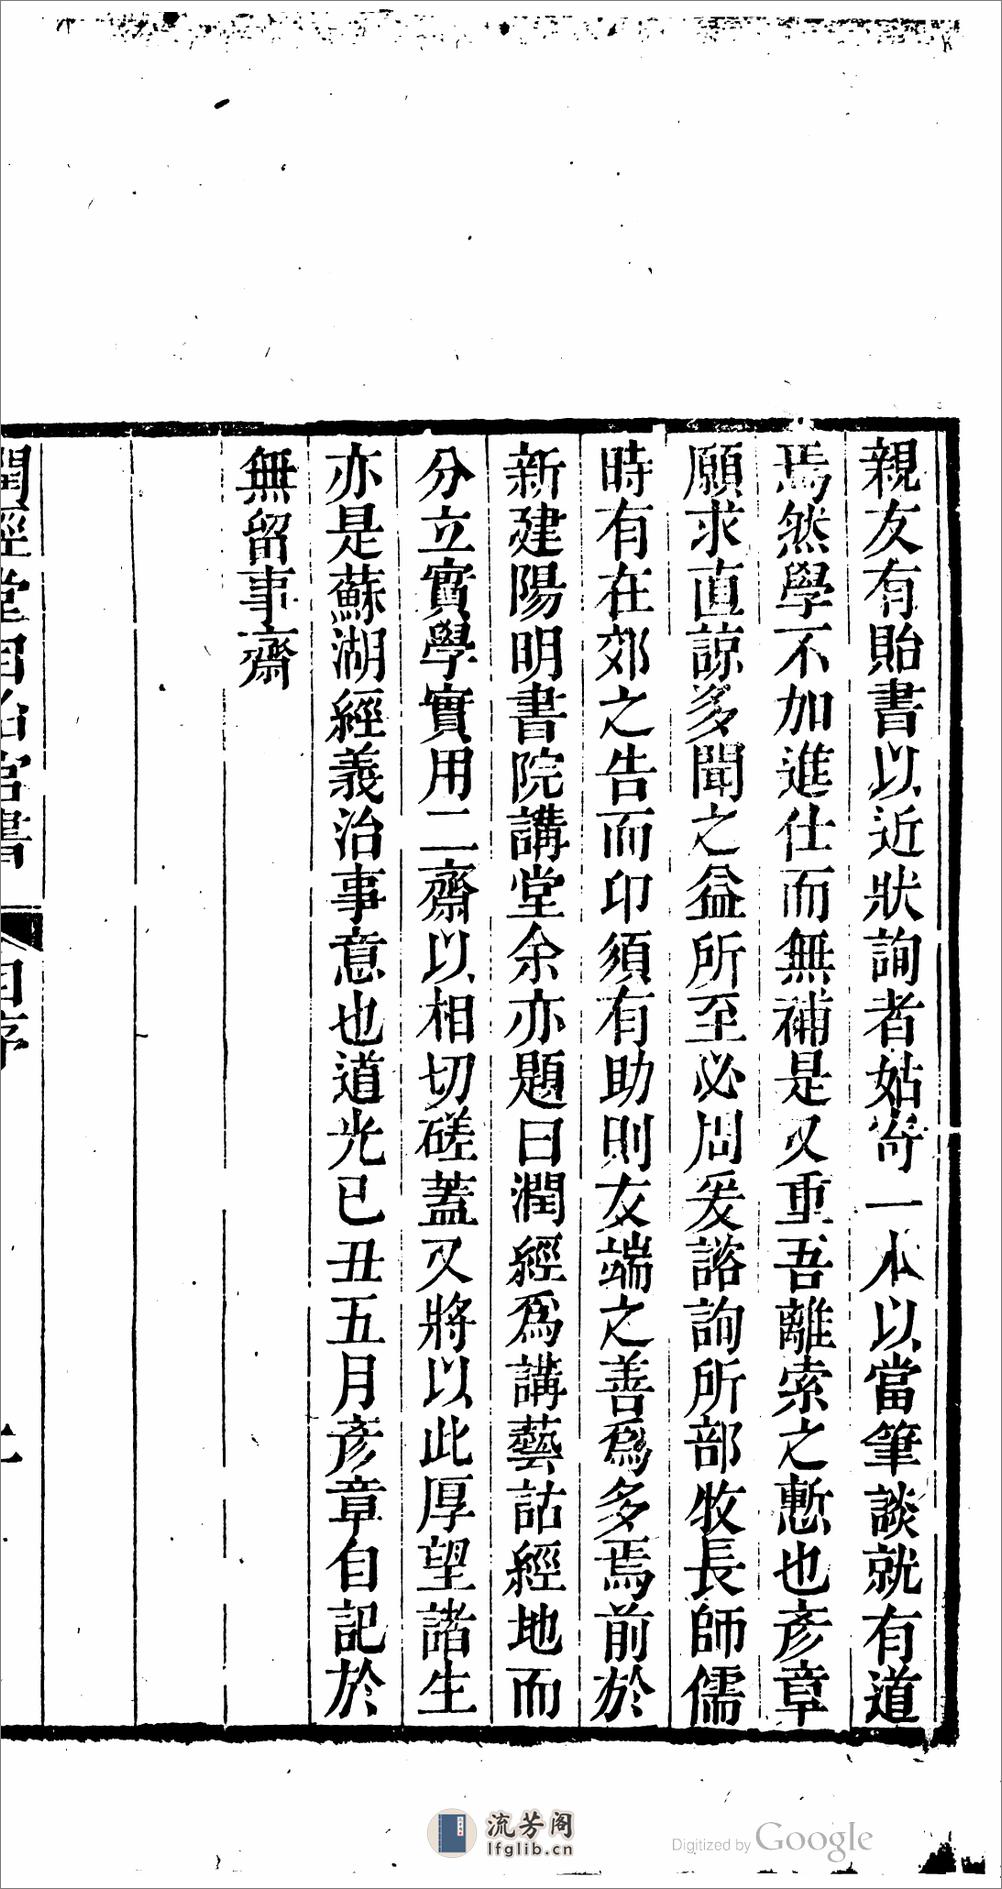 親友有貽書以近狀詢者姑寄一本以當筆談就有道
焉然學不加進仕而無補是又重吾離索之慙也彥章
願求直諒多聞之益所至必周爰諮詢所部牧長師儒
時有在郊之告而卬須有助則友端之善爲多焉前於
新建陽明書院講堂余亦題曰潤經爲講藝詁經地而
分立實學實用二齋以相切磋蓋又將以此厚望諸生
亦是蘇湖經義治事意也道光已丑五月彥章自記於
無留事齋
潤經堂自治官書 自序
流芳阁
lfglib.cn
Digitized by Google